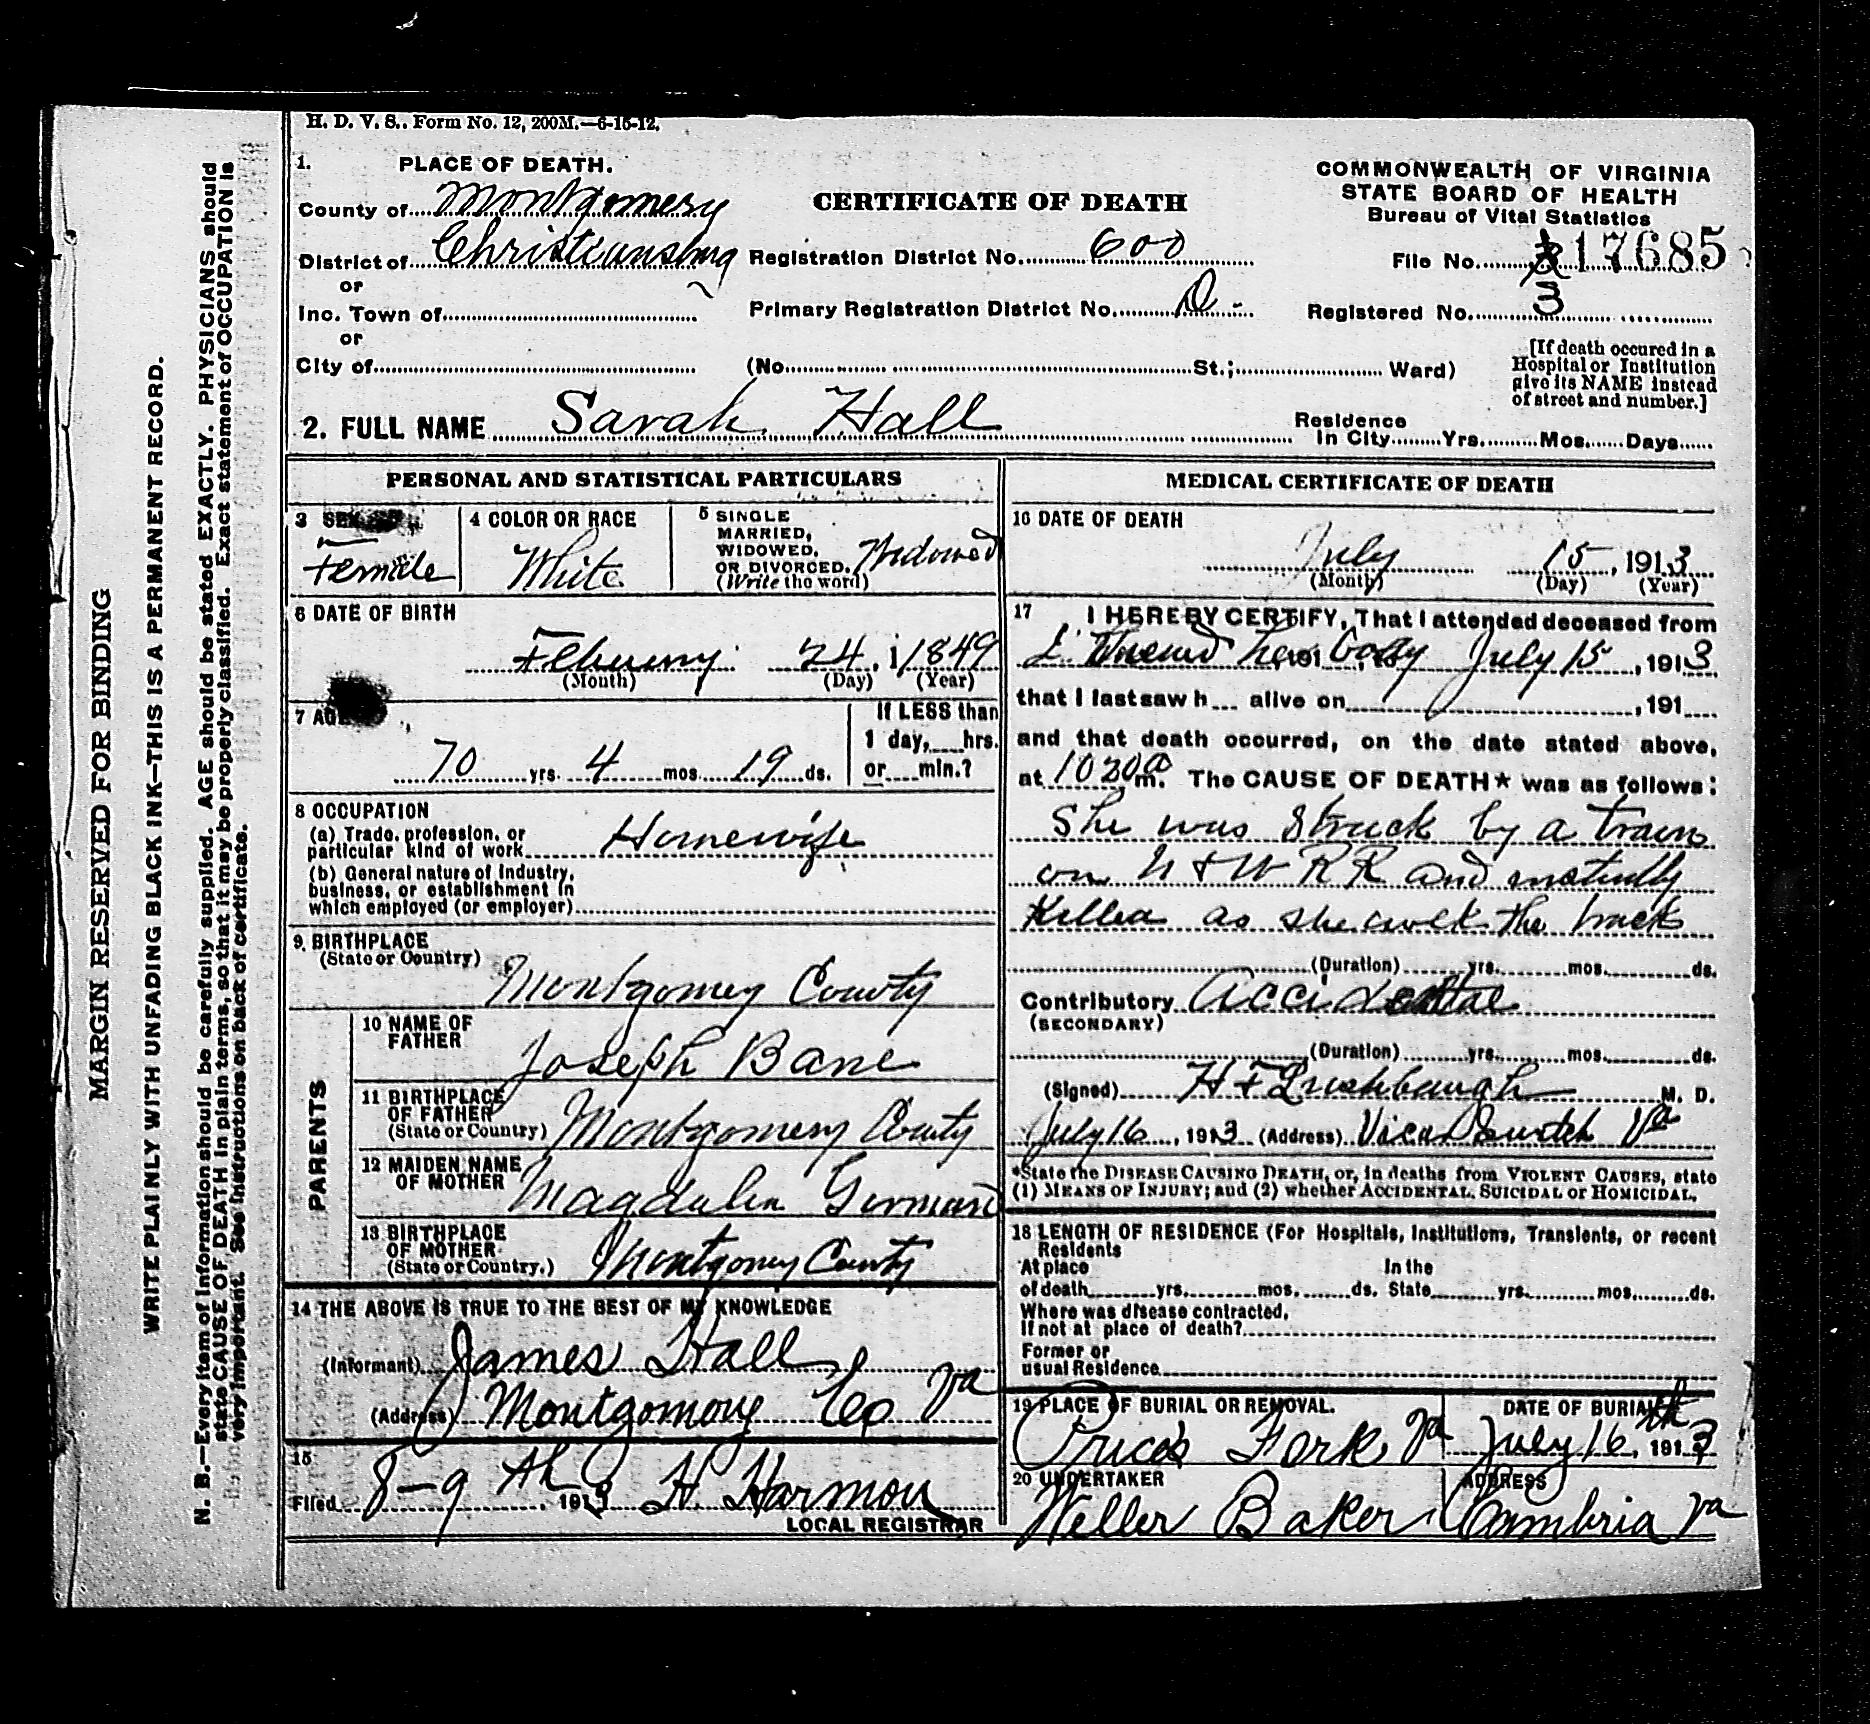 H. D. V. S.. Form No. 12, 200M.—6-15-12.
1. PLACE OF DEATH.
County of Montgomery
District of Christiansburg
or
Inc. Town of
or
City of
CERTIFICATE OF DEATH
Registration District No. 600
Primary Registration District No. D-
(No. St.; Ward)
COMMONWEALTH OF VIRGINIA
STATE BOARD OF HEALTH
Bureau of Vital Statistics
File No. 17685
Registered No. 3
[If death occured in a
Hospital or Institution
give its NAME instead
of street and number.]
2. FULL NAME Sarah Hall
Residence
In City Yrs. Mos. Days
PERSONAL AND STATISTICAL PARTICULARS
3 SEX
Female
4 COLOR OR RACE
White
5 SINGLE
MARRIED,
WIDOWED,
OR DIVORCED.
(Write the word)
Widowed
6 DATE OF BIRTH
February 24, 1849
(Month) (Day) (Year)
7 AGE
70 yrs. 4 mos. 19 ds.
If LESS than
1 day, hrs.
or min.?
8 OCCUPATION
(a) Trade, profession, or
particular kind of work Housewife
(b) General nature of Industry,
business, or establishment in
which employed (or employer)
9. BIRTHPLACE
(State or Country)
Montgomery County
PARENTS
10 NAME OF
FATHER
Joseph Bane
11 BIRTHPLACE
OF FATHER
(State or Country)
Montgomery County
12 MAIDEN NAME
OF MOTHER
Magdalin
13 BIRTHPLACE
OF MOTHER
(State or Country.)
Montgomery County
14 THE ABOVE IS TRUE TO THE BEST OF MY KNOWLEDGE
(Informant) James Hall
(Address) Montgomery Co Va
15
Filed 8-9th, 1913 H. Harmon
LOCAL REGISTRAR
MEDICAL CERTIFICATE OF DEATH
16 DATE OF DEATH
July 15, 1913
(Month) (Day) (Year)
17 I HEREBY CERTIFY, That I attended deceased from
I Viewed her body July 15, 1913
that I last saw h alive on , 191
and that death occurred, on the date stated above,
at 10 20 a m. The CAUSE OF DEATH* was as follows:
She was struck by a train
on N & W R R and instantly
Killed as she walk the track
(Duration) yrs. mos. ds.
Contributory Accidental
(SECONDARY)
(Duration) yrs. mos. ds.
(Signed) H F M. D.
July 16, 1913 (Address) Vicar Switch Va
*State the DISEASE CAUSING DEATH, or, in deaths from VIOLENT CAUSES, state
(1) MEANS OF INJURY; and (2) whether ACCIDENTAL, SUICIDAL or HOMICIDAL.
18 LENGTH OF RESIDENCE (For Hospitals, Institutions, Transients, or recent
Residents
At place In the
of death yrs. mos. ds. State yrs. mos. ds.
Where was disease contracted,
If not at place of death?
Former or
usual Residence
19 PLACE OF BURIAL OR REMOVAL.
Prices Fork Va
DATE OF BURIAL
July 16th, 1913
20 UNDERTAKER
Weller Baker
ADDRESS
Cambria Va
MARGIN RESERVED FOR BINDING
WRITE PLAINLY WITH UNFADING BLACK INK—THIS IS A PERMANENT RECORD.
N. B.—Every item of information should be carefully supplied. AGE should be stated EXACTLY. PHYSICIANS should
state CAUSE OF DEATH in plain terms, so that it may be properly classified. Exact statement of OCCUPATION is
very important. See instructions on back of certificate.